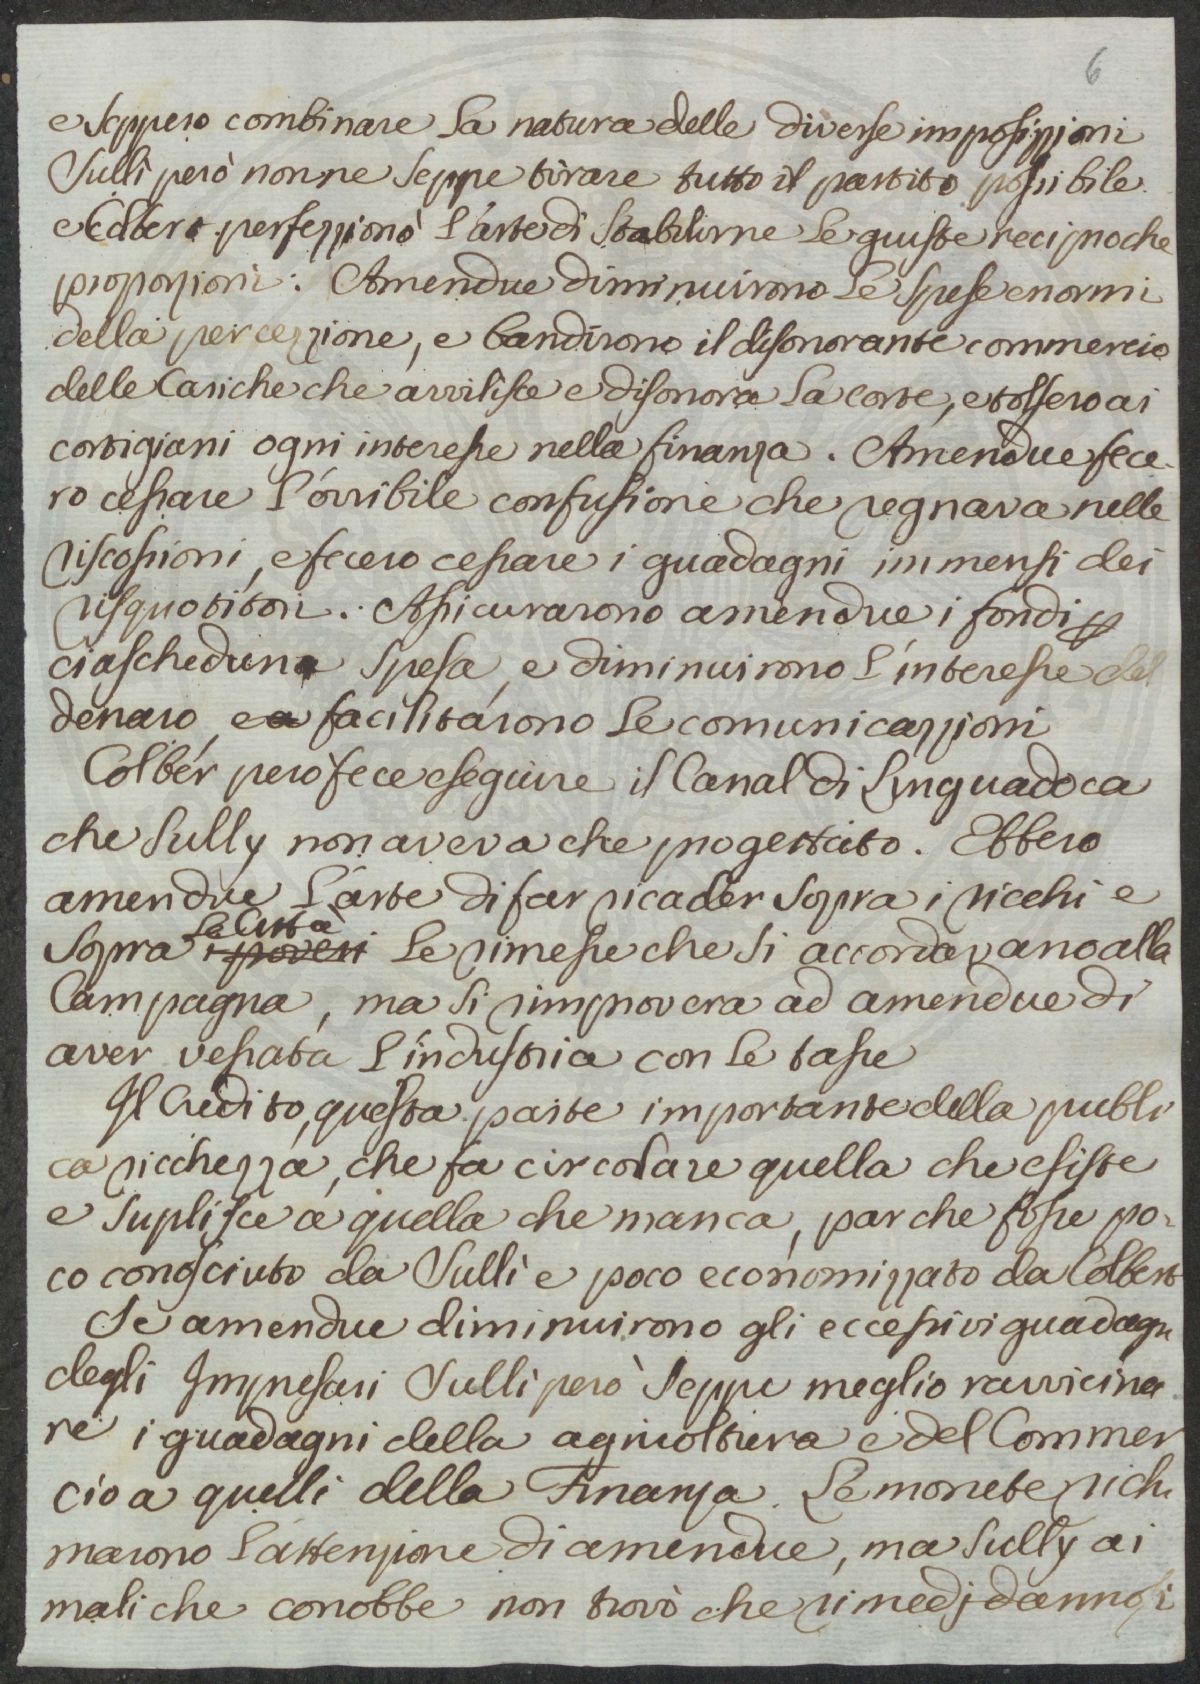 6
e seppero combinare la natura delle diverse imposizzioni
Sullì però non ne seppe tirare tutto il partito possibile
e Colbert perfezzionò l'arte di stabilirne le giuste reciproche
proporzioni: Amendue diminuirono le spese enormi
della percezzione, e bandirono il disonorante commercio
delle Cariche che avvilisce e disonora la corte, e tolsero ai
cortigiani ogni interesse nella finanza. Amendue fece-
ro cessare l'orribile confusione che regnava nelle
riscossioni, e fecero cessare i guadagni immensi dei
risquotitori. Assicurarono amendue i fondi p
ciascheduna spesa, e diminuirono l'interesse del
denaro, e facilitarono le comunicazzioni
Colbér però fece eseguire il Canal di Linguadoca
che Sully non aveva che progettato. Ebbero
amendue l'arte di far ricader sopra i ricchi e
le Città
sopra i poveri le rimesse che si accordavano alla
Campagna, ma si rimprovera ad amendue di
aver vessata l'industria con le tasse
Il Credito, questa parte importante della publi
ca ricchezza, che fa circolare quella che esiste
e suplisce a quella che manca, par che fosse po-
co conosciuto da Sullì e poco economizzato da Colbert
Se amendue diminuirono gli eccessivi guadagn
degli Impresari Sullì però seppe meglio ravvicina
re i guadagni della agricoltura e del Commer
cio a quelli della Finanza. Le monete richi
marono l'attenzione di amendue, ma Sully ai
mali che conobbe non trovò che rimedj dannosi